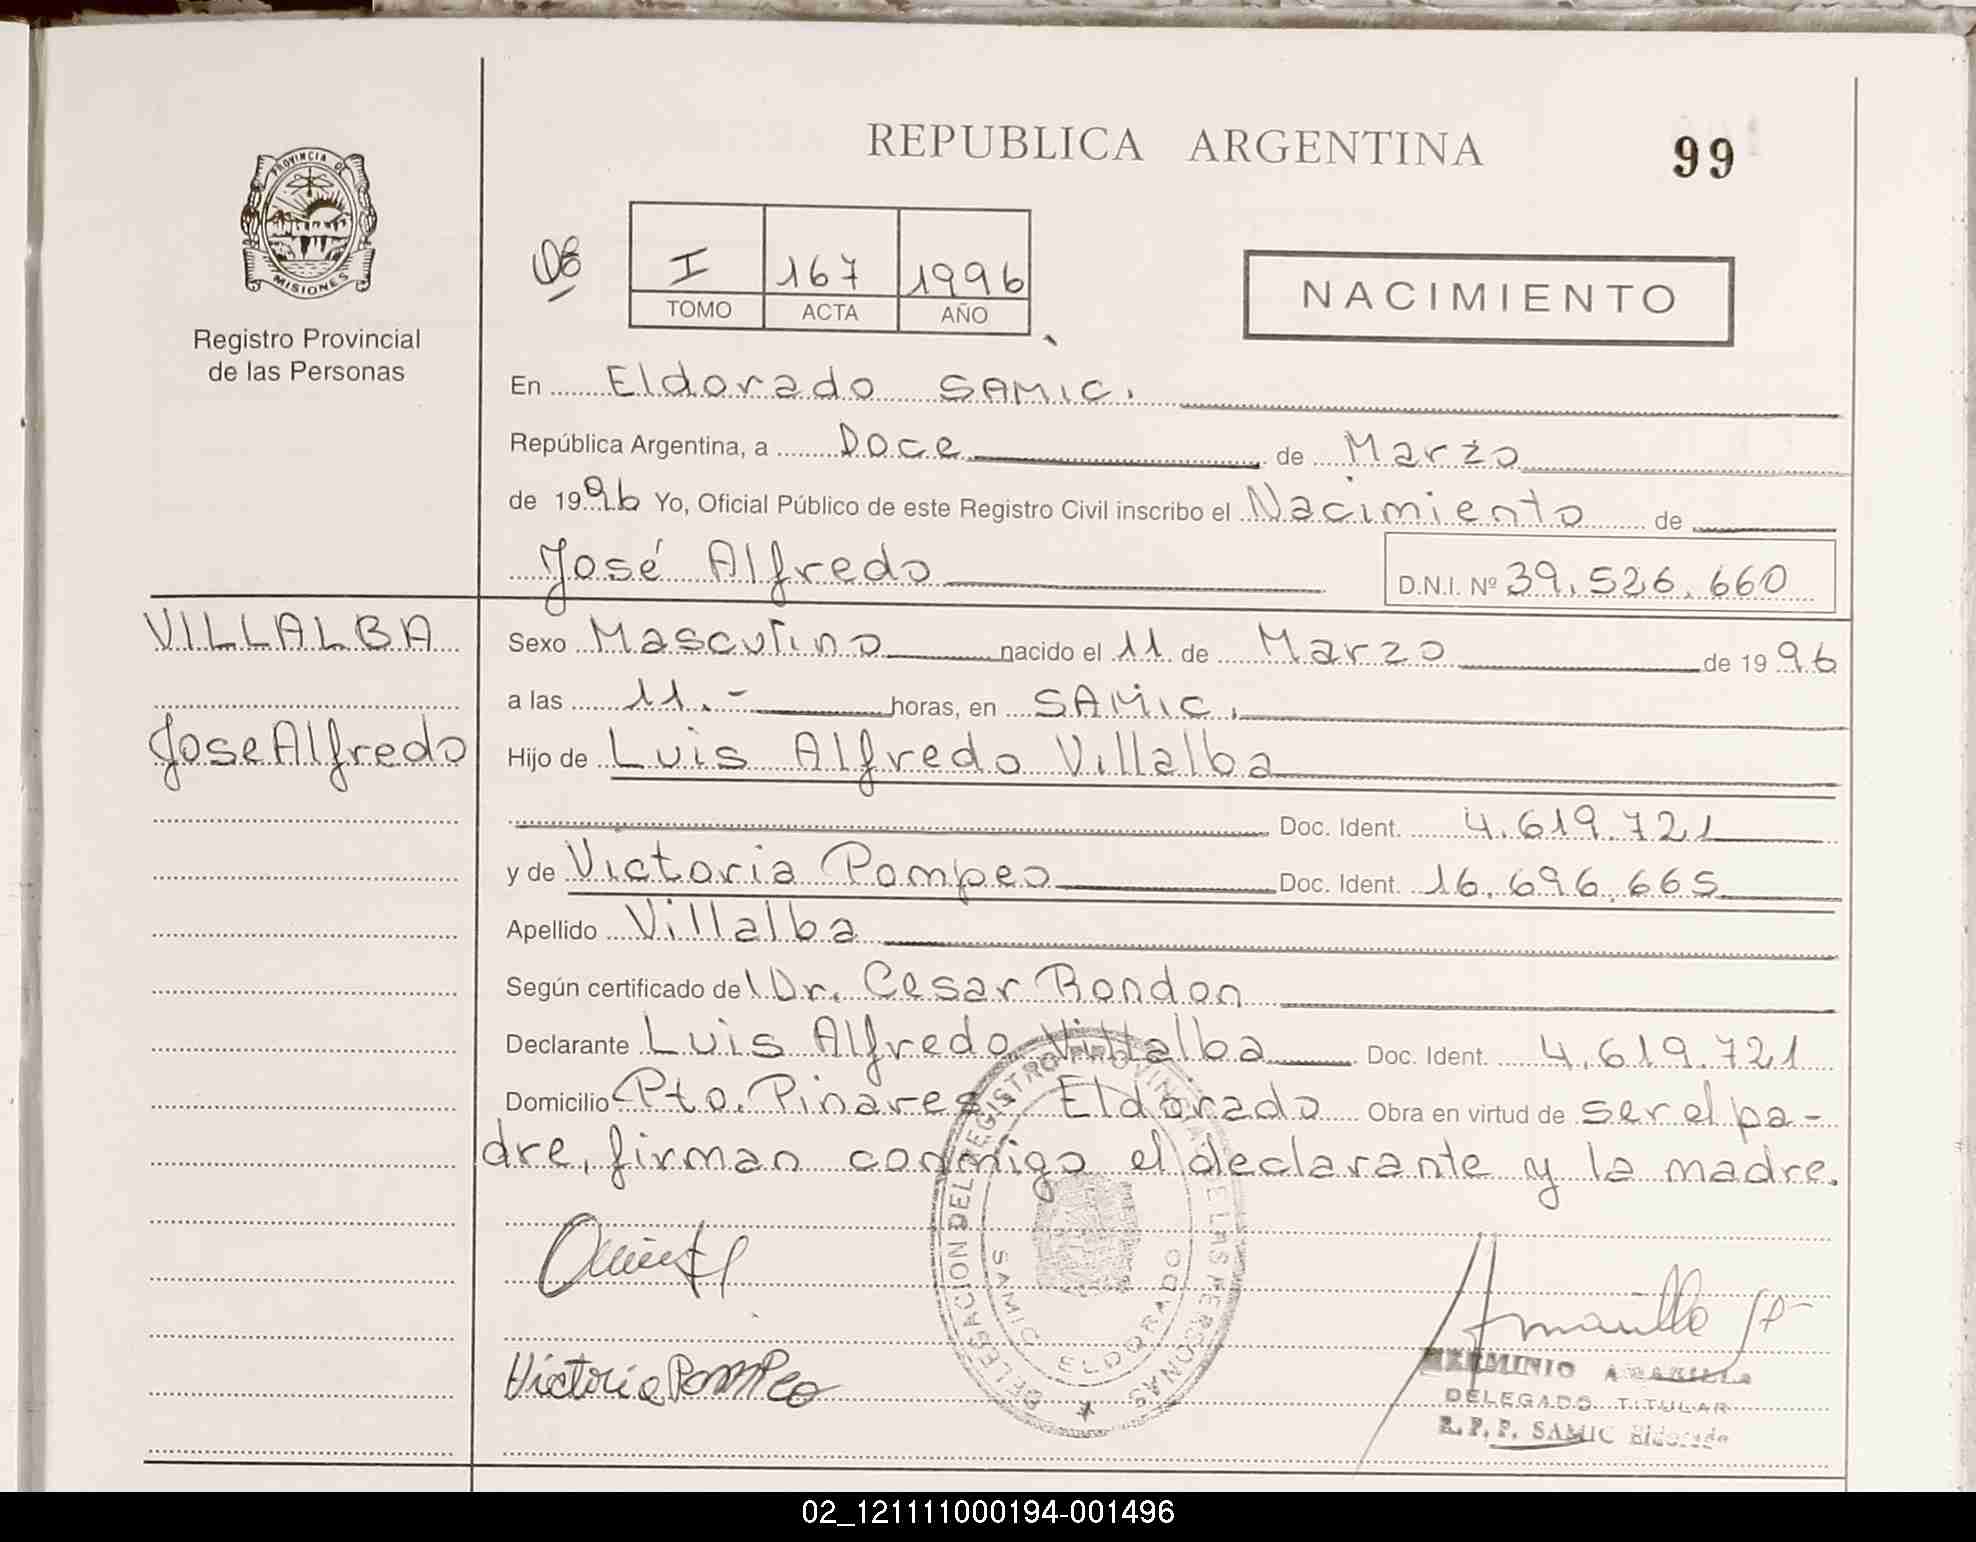 REPUBLICA ARGENTINA
99
PROVINCIA DE
MISIONES
Registro Provincial
de las Personas
I 167 1996
TOMO ACTA AÑO
NACIMIENTO
En Eldorado SAMIC.
República Argentina, a Doce de Marzo
de 1996 Yo, Oficial Público de este Registro Civil inscribo el Nacimiento de
José Alfredo D.N.I. Nº 39.526.660
VILLALBA
Jose Alfredo
Sexo Masculino nacido el 11 de Marzo de 1996
a las 11.- horas, en SAMIC.
Hijo de Luis Alfredo Villalba
Doc. Ident. 4.619.721
y de Victoria Pompeo Doc. Ident. 16.696.665
Apellido Villalba
Según certificado del Dr. Cesar Rondon
Declarante Luis Alfredo Villalba Doc. Ident. 4.619.721
Domicilio Pto. Pinares Eldorado Obra en virtud de ser el pa-
dre, firman conmigo el declarante y la madre.
DELEGACION DEL REGISTRO PROVINCIAL DE LAS PERSONAS
SAMIC ELDORADO
Victoria Pompeo
HERMINIO
DELEGADO TITULAR
R.P.P. SAMIC Eldorado
02_121111000194-001496